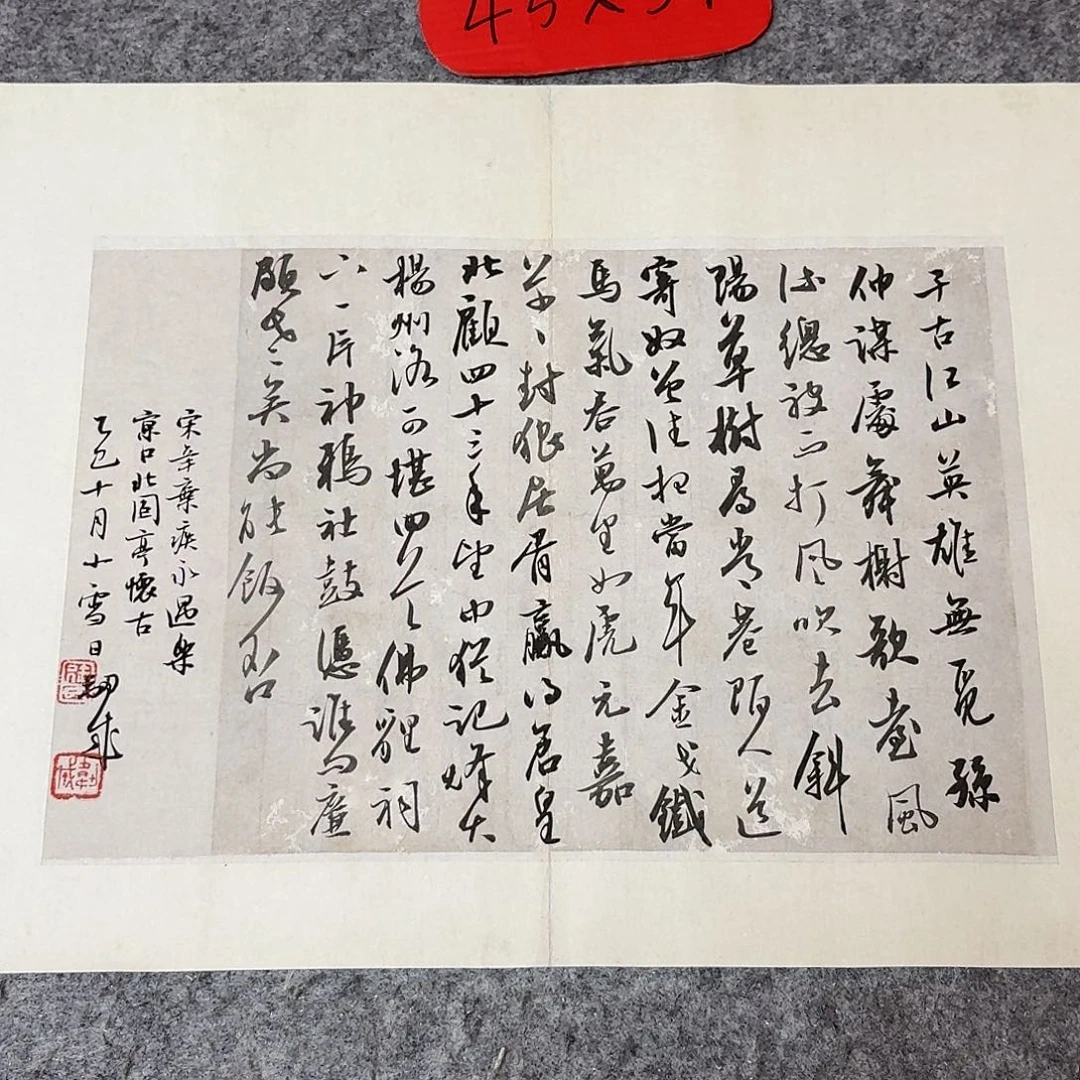 千古江山英雄無覓孫
仲謀處舞榭歌臺風
流總被雨打風吹去斜
陽草樹尋常巷陌人道
寄奴曾住想當年金戈鐵
馬氣吞萬里如虎元嘉
草〻封狼居胥贏得倉皇
北顧四十三年望中猶記烽火
楊州路可堪回首佛貍祠
下一片神鴉社鼓憑誰問廉
頗老〻矣尚能飯否
宋辛棄疾永遇樂
京口北固亭懷古
乙巳十月小雪日